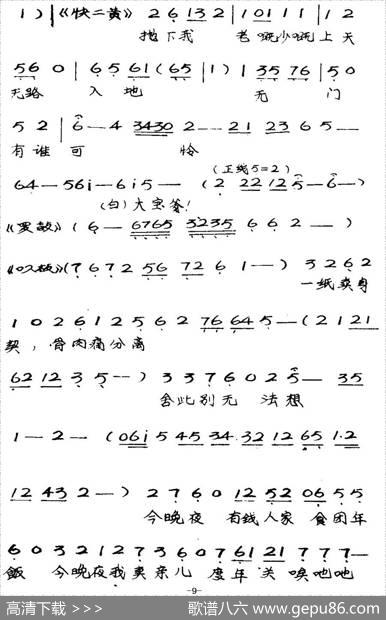 1 ) | 《快二黄》 2 6 1 3 2 | 1 0 1 1 1 | 1 2
抛下我 老嘅少嘅上天
5 6 0 | 6 5 6 1 ( 6 5 | 1 ) | 1 3 5 7 6 | 5 0
无路 入地 无门
5 2 | 6 — 4 3 4 3 0 2 — — 2 1 2 3 6 5 —
有谁可 怜
(正线5=2)
6 4 — 5 6 i — 6 i 5 — — ( 2 2 2 1 2 5 — 6 — )
(白)大宝爹!
( 6 — 6 7 6 5 3 2 3 5 6 6 2 — — )
( 7 6 7 2 5 6 7 2 6 1 — — ) 3 2 6 2
一纸卖身
1 0 2 6 1 2 5 6 2 7 6 6 4 5 — — ( 2 1 2 1
契,骨肉痛分离
6 2 1 2 3 5 — — ) 3 3 7 6 0 2 5 — 3 5
舍此别无 法想
1 — 2 — ( 0 6 i 5 4 5 3 4 3 2 1 2 6 5 1·2
1 2 4 3 2 — ) 2 7 6 0 1 2 5 2 0 6 5 5
今晚夜 有钱人家 食团年
6 0 3 2 1 2 7 3 6 0 7 6 1 2 1 7 7 7 —
飯 今晚夜我卖亲儿 度年关 唉吔吔
-9-
高清下载 >>>
歌谱八六 www.gepu86.com